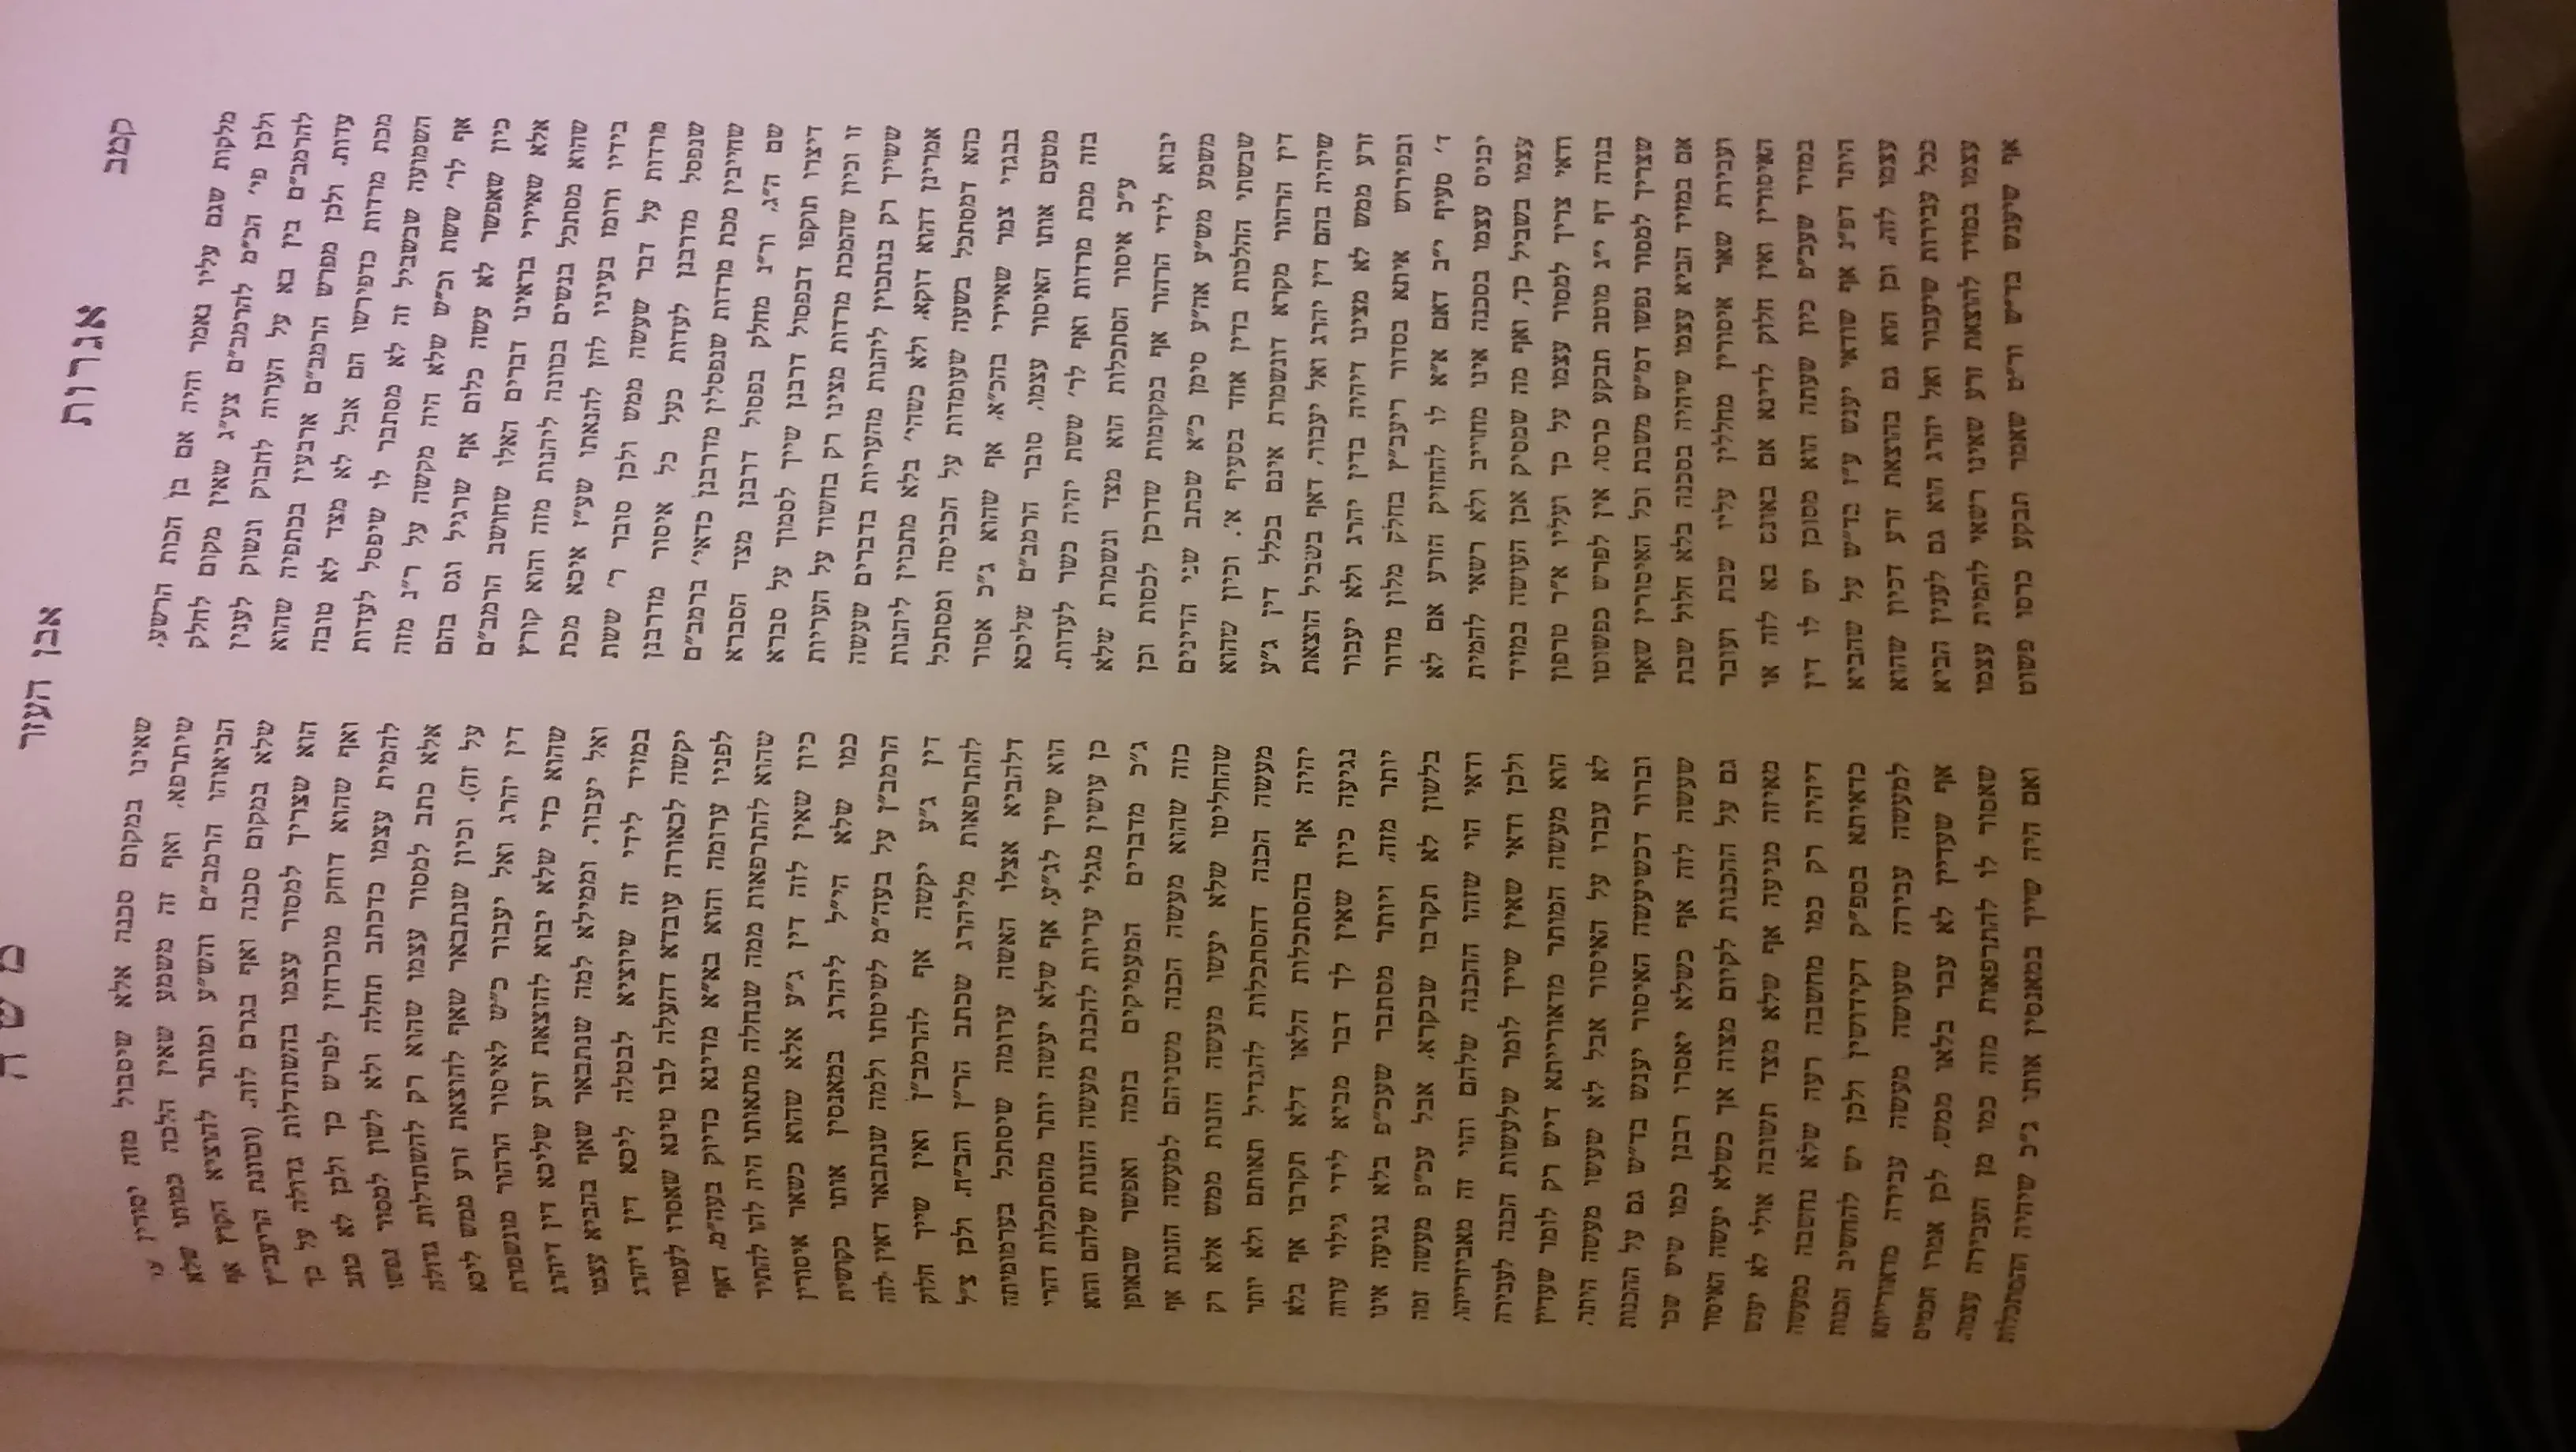 קמב אגרות אבן העזר משה
מלקות שגם עליו נאמר והיה אם בן הכות הרשע.
ולכן פי' הכ"מ להרמב"ם צע"ג שאין מקום לחלק
להרמב"ם בין בא על הערוה לחבוק ונשוק לענין
עדות. ולכן מפרש הרמב"ם ארבעין בכתפיה שהוא
מכת מרדות כדפירשו הם אבל לא מצד לא טובה
השמועה שבשביל זה לא מסתבר לו שיפסל לעדות
אף לר' ששת וכ"ש שלא היה מקשה על ר"נ מזה
כיון שאפשר לא עשה כלום אף שרגיל וגם בהם
אלא שאיירי בראינו דברים האלו שחושב הרמב"ם
שהוא מסתכל בנשים בכוונה ליהנות מזה והוא קורץ
בידיו ורומז בעיניו להן להנאתו שע"ז איכא מכת
מרדות על דבר שעשה ממש ולכן סובר ר' ששת
שנפסל מדרבנן לעדות כעל כל איסור מדרבנן
שחייבין מכת מרדות שנפסלין מדרבנן כדאי' ברמב"ם
שם ה"ג, ור"נ מחלק בפסול דרבנן מצד הסברא
דיצרו תוקפו דבפסול דרבנן שייך לסמוך על סברא
זו וכיון שהמכת מרדות מצינו רק בחשוד על העריות
ששייך רק בנתכוין ליהנות מהעריות בדברים שעשה
אמרינן דהוא דוקא, ולא כשהי' בלא מתכוין ליהנות
כהא דמסתכל בשעה שעומדות על הכביסה ומסתכל
בבגדי צמר שאיירי בהכ"א, אף שהוא ג"כ אסור
מטעם אותו האיסור עצמו, סובר הרמב"ם שליכא
בזה מכת מרדות ואף לר' ששת יהיה כשר לעדות.
ע"כ איסור הסתכלות הוא מצד ונשמרת שלא
יבוא לידי הרהור אף במקומות שדרכן לכסות וכן
משמע מש"ע אה"ע סימן כ"א שכתב שני הדינים
שבשתי ההלכות בדין אחד בסעיף א'. וכיון שהוא
דין הרהור מקרא דונשמרת אינם בכלל דין ג"ע
שיהיה בהם דין יהרג ואל יעבור, דאף בשביל הוצאת
זרע ממש לא מצינו דיהיה בדין יהרג ולא יעבור
ובפירוש איתא בסדור ריעב"ץ בחלק מלון מדור
ד' סעיף י"ב דאם א"א לו להחזיק הזרע אם לא
יכניס עצמו בסכנה אינו מחוייב ולא רשאי להמית
עצמו בשביל כך, ואף מה שמסיק אכן העושה במזיד
ודאי צריך למסור עצמו על כך ועליו א"ר טרפון
בנדה דף י"ג מוטב תבקע כרסו, אין לפרש כפשוטו
שצריך למסור נפשו דמ"ש משבת וכל האיסורין שאף
אם במזיד הביא עצמו שיהיה בסכנה בלא חלול שבת
ועבירת שאר איסורין מחללין עליו שבת ועובר
האיסורין ואין חלוק לדינא אם באונס בא לזה או
במזיד שעכ"פ כיון שעתה הוא מסוכן יש לו דין
היתר דפ"נ אף שודאי יענש ע"ז בד"ש על שהביא
עצמו לזה, וכן הוא גם בהוצאת זרע דכיון שהוא
ככל עבירות שיעבור ואל יהרג הוא גם לענין הביא
עצמו במזיד להוצאת זרע שאינו רשאי להמית עצמו
אף שיענש בד"ש ור"ט שאמר תבקע כרסו פשוט
שאינו במקום סכנה אלא שיסבול מזה יסורין עי
שיתרפא, ואף זה משמע שאין הלכה כמותו שלא
הביאוהו הרמב"ם והש"ע ומותר להוציא הקוץ אף
שלא במקום סכנה ואף בגרם לזה. (וכוונת הריעב"ץ
הוא שצריך למסור עצמו בהשתדלות גדולה על כך
ואף שהוא דוחק מוכרחין לפרש כך ולכן לא כתב
להמית עצמו כדכתב תחלה ולא לשון למסור נפשו
אלא כתב למסור עצמו שהוא רק להשתדלות גדולה
על זה). וכיון שנתבאר שאף להוצאת זרע ממש ליכא
דין יהרג ואל יעבור כ"ש לאיסור הרהור מונשמרת
שהוא כדי שלא יבוא להוצאת זרע שליכא דין דיהרג
ואל יעבור. וממילא למה שנתבאר שאף בהביא עצמו
במזיד לידי זה שיוציא לבטלה ליכא דין דיהרג
יקשה לכאורה עובדא דהעלה לבו טינא שאסרו לעמוד
לפניו ערומה והוא בא"א מדינא כדיוק בעה"מ, דאף
שהוא להתרפאות ממה שנחלה מתאותו היה להו להתיר
כיון שאין לזה דין ג"ע אלא שהוא כשאר איסורין
כמו שלא הי"ל ליהרג במאנסין אותו כקושית
הרמב"ן על בעה"מ לשיטתו ולמה שנתבאר דאין לזה
דין ג"ע יקשה אף להרמב"ן ואין שייך חלוק
להתרפאות מליהרג שכתב הר"ן והב"ח. ולכן צ"ל
דלהביא אצלו האשה ערומה שיסתכל בערמומיתה
הוא שייך לג"ע, אף שלא יעשה יותר מהסתכלות דהרי
כן עושין מגלי עריות להכנת מעשה הזנות שלהם והוא
ג"כ מדברים המעמיקים בזמה ואפשר שבאופן
כזה שהיא מעשה הכנה משניהם למעשה הזנות אף
שהחליטו שלא יעשו מעשה הזנות ממש אלא רק
מעשה הכנה דהסתכלות להגדיל תאותם ולא יותר
יהיה אף בהסתכלות הלאו דלא תקרבו אף בלא
נגיעה כיון שאין לך דבר מביא לידי גילוי ערוה
יותר מזה, ויותר מסתבר שעכ"פ בלא נגיעה אינו
בלשון לא תקרבו שבקרא, אבל עכ"פ מעשה זמה
ודאי הוי שזהו ההכנה שלהם והוי זה מאביזרייהו.
ולכן ודאי שאין שייך לומר שלעשות הכנה לעבירה
הוא מעשה המותר מדאורייתא דיש רק לומר שעדיין
לא עברו על האיסור אבל לא שעשו מעשה היתר,
וברור דכשיעשה האיסור יענש בד"ש גם על ההכנות
שעשה לזה אף כשלא יאסרו רבנן כמו שיש שכר
גם על ההכנות לקיום מצוה אך כשלא יעשה האיסור
מאיזה מניעה אף שלא מצד תשובה אולי לא יענש
דיהיה רק כמו מחשבה רעה שלא נחשבה כמעשה
כדאיתא בספ"ק דקידושין ולכן יש להחשיב הכנות
למעשה עבירה שעושה מעשה עבירה מדאורייתא
אף שעדיין לא עבר בלאו ממש. לכן אמרו חכמים
שאסור לו להתרפאות מזה כמו מן העבירה עצמה.
ואם היה שייך במאנסין אותו ג"כ שיהיה ההסתכלות